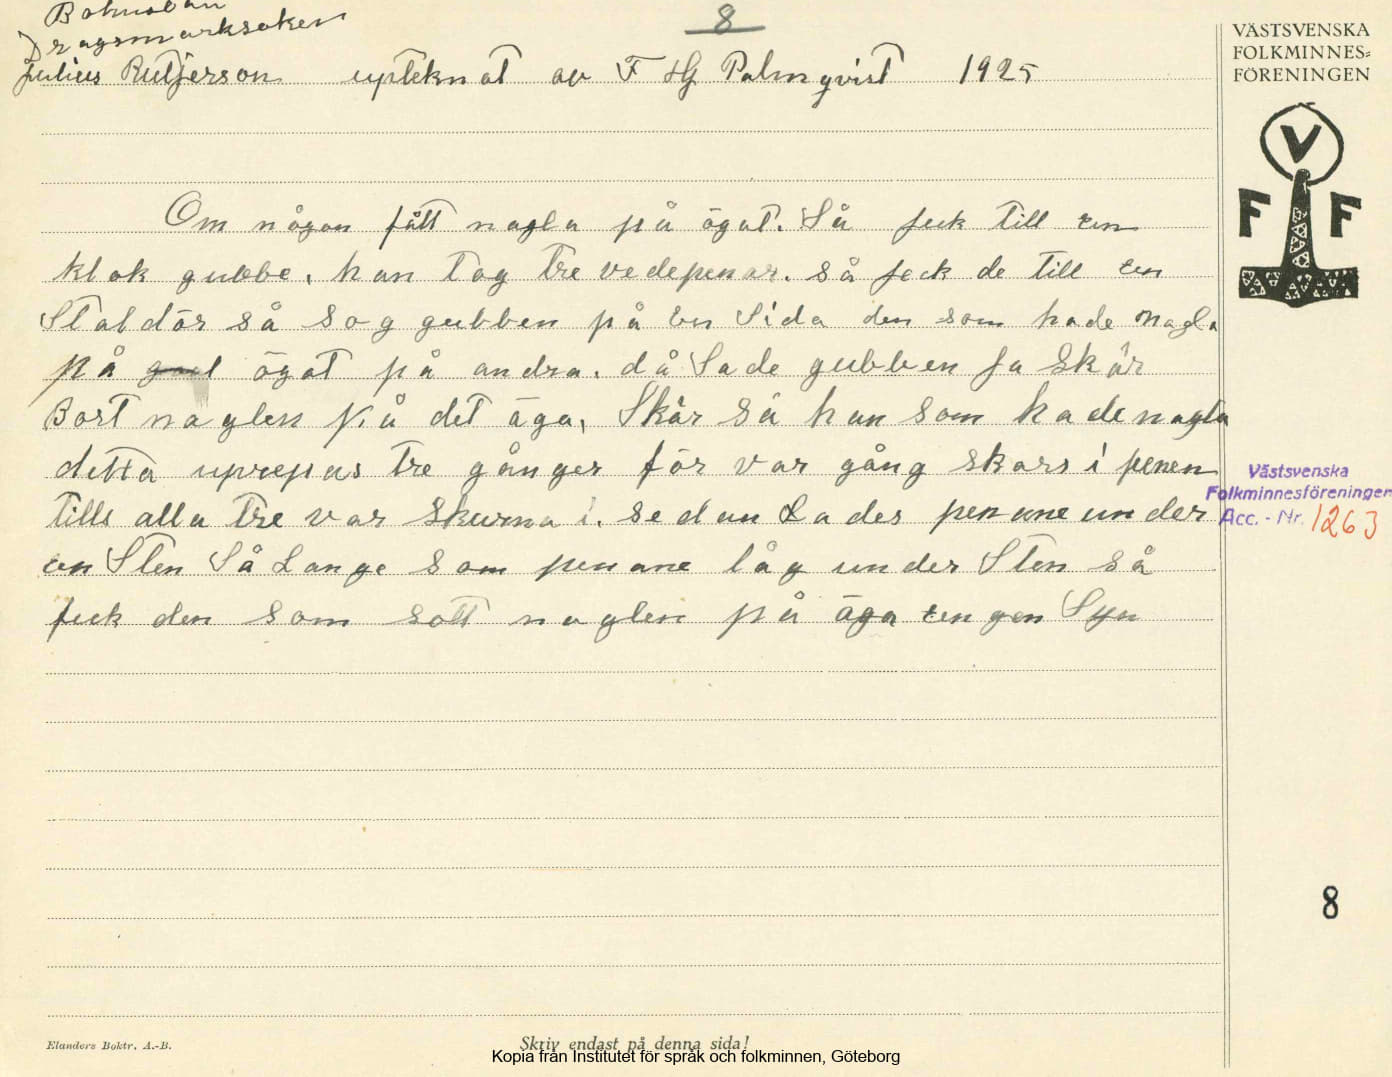 8
Bohuslän
Dragsmarksoken
Julius Rutjerson upteknat av F Hg Palmqvist 1925
VÄSTSVENSKA
FOLKMINNES-
FÖRENINGEN
V
F F
Om någon fått nagla på ögat. Så feck till een
klok gubbe, han tog tre vedepenar. så feck de till een
Staldör så sog gubben på En Sida den som hade nagla
på ögat på andra. då Sade gubben Ja Skär
Bort naglen på det äga, Skär Så han som hade nagla
detta uprepas tre gånger för var gång skars i penen
tills alla tre var Skurna i. sedan Lades penane under
een Sten Så Lange som penane låg under Sten så
feck den som sott naglen på äga eengen Syn
Västsvenska
Folkminnesföreningen
Acc. - Nr. 1263
8
Elanders Boktr. A.-B.
Skriv endast på denna sida!
Kopia från Institutet för språk och folkminnen, Göteborg